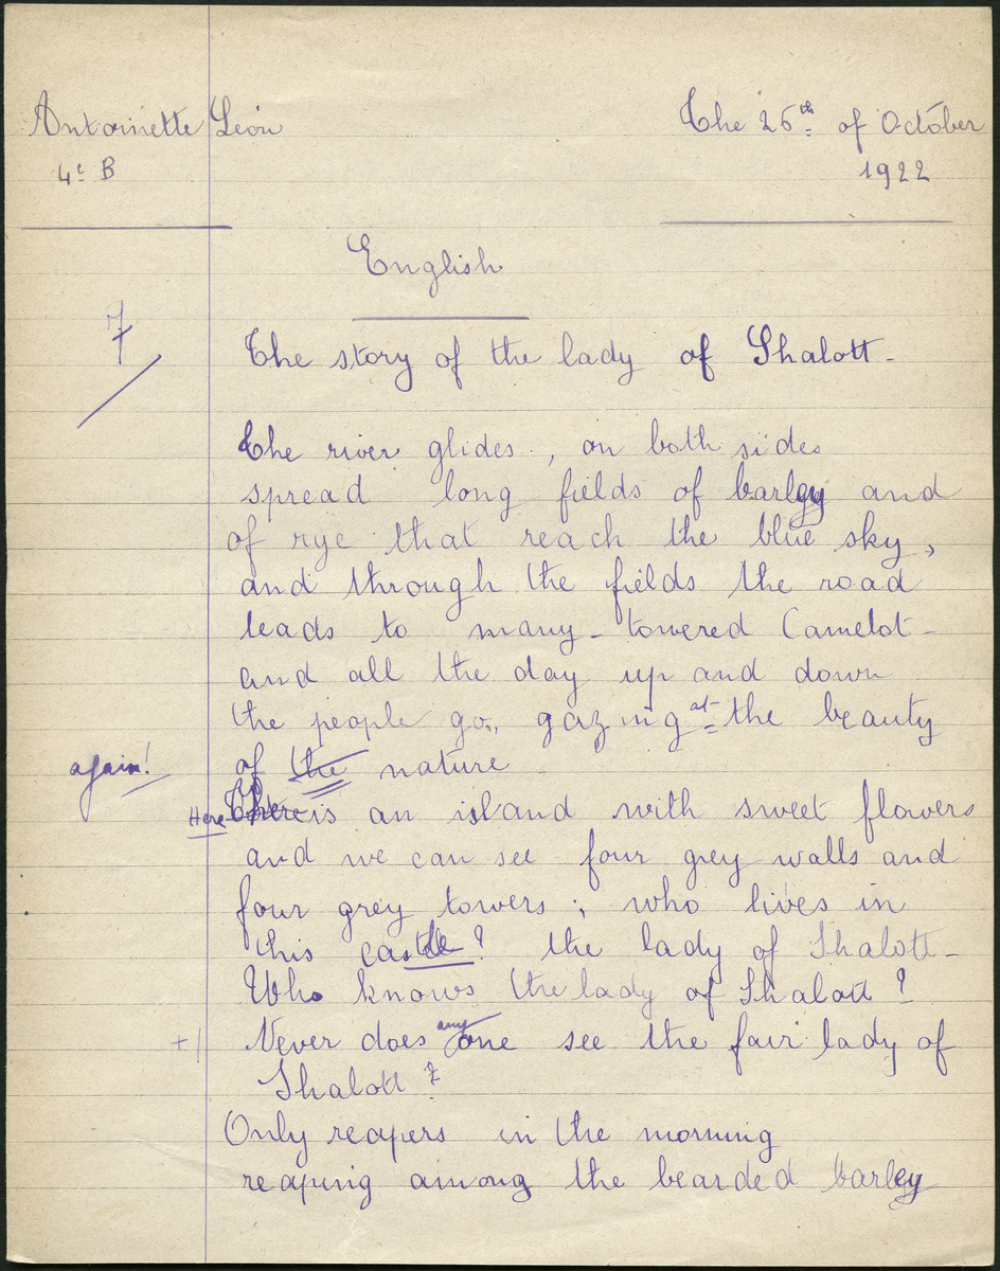 Antoinette Léon
The 26th of October
4e B
1922
English
7
The story of the lady of Shalott-
The river glides, on both sides
spread long fields of barley and
of rye that reach the blue sky,
and through the fields the road
leads to many-towered Camelot-
and all the day up and down
the people go, gazing at the beauty
again! of the nature
Here is an island with sweet flowers
and we can see four grey walls and
four grey towers; who lives in
this castle? the lady of Shalott-
Who knows the lady of Shalott?
+ Never does any one see the fair lady of
Shalott?
Only reapers in the morning
reaping among the bearded barley